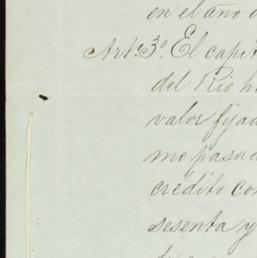 en el año
Arto. 3o. El capit
del Rio h
valor fijad
mo pasad
crédito con
sesenta y